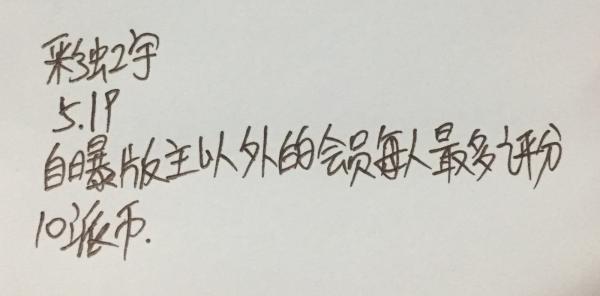 彩虫2宇
5.19
自曝版主以外的会员每人最多评分
10派币.